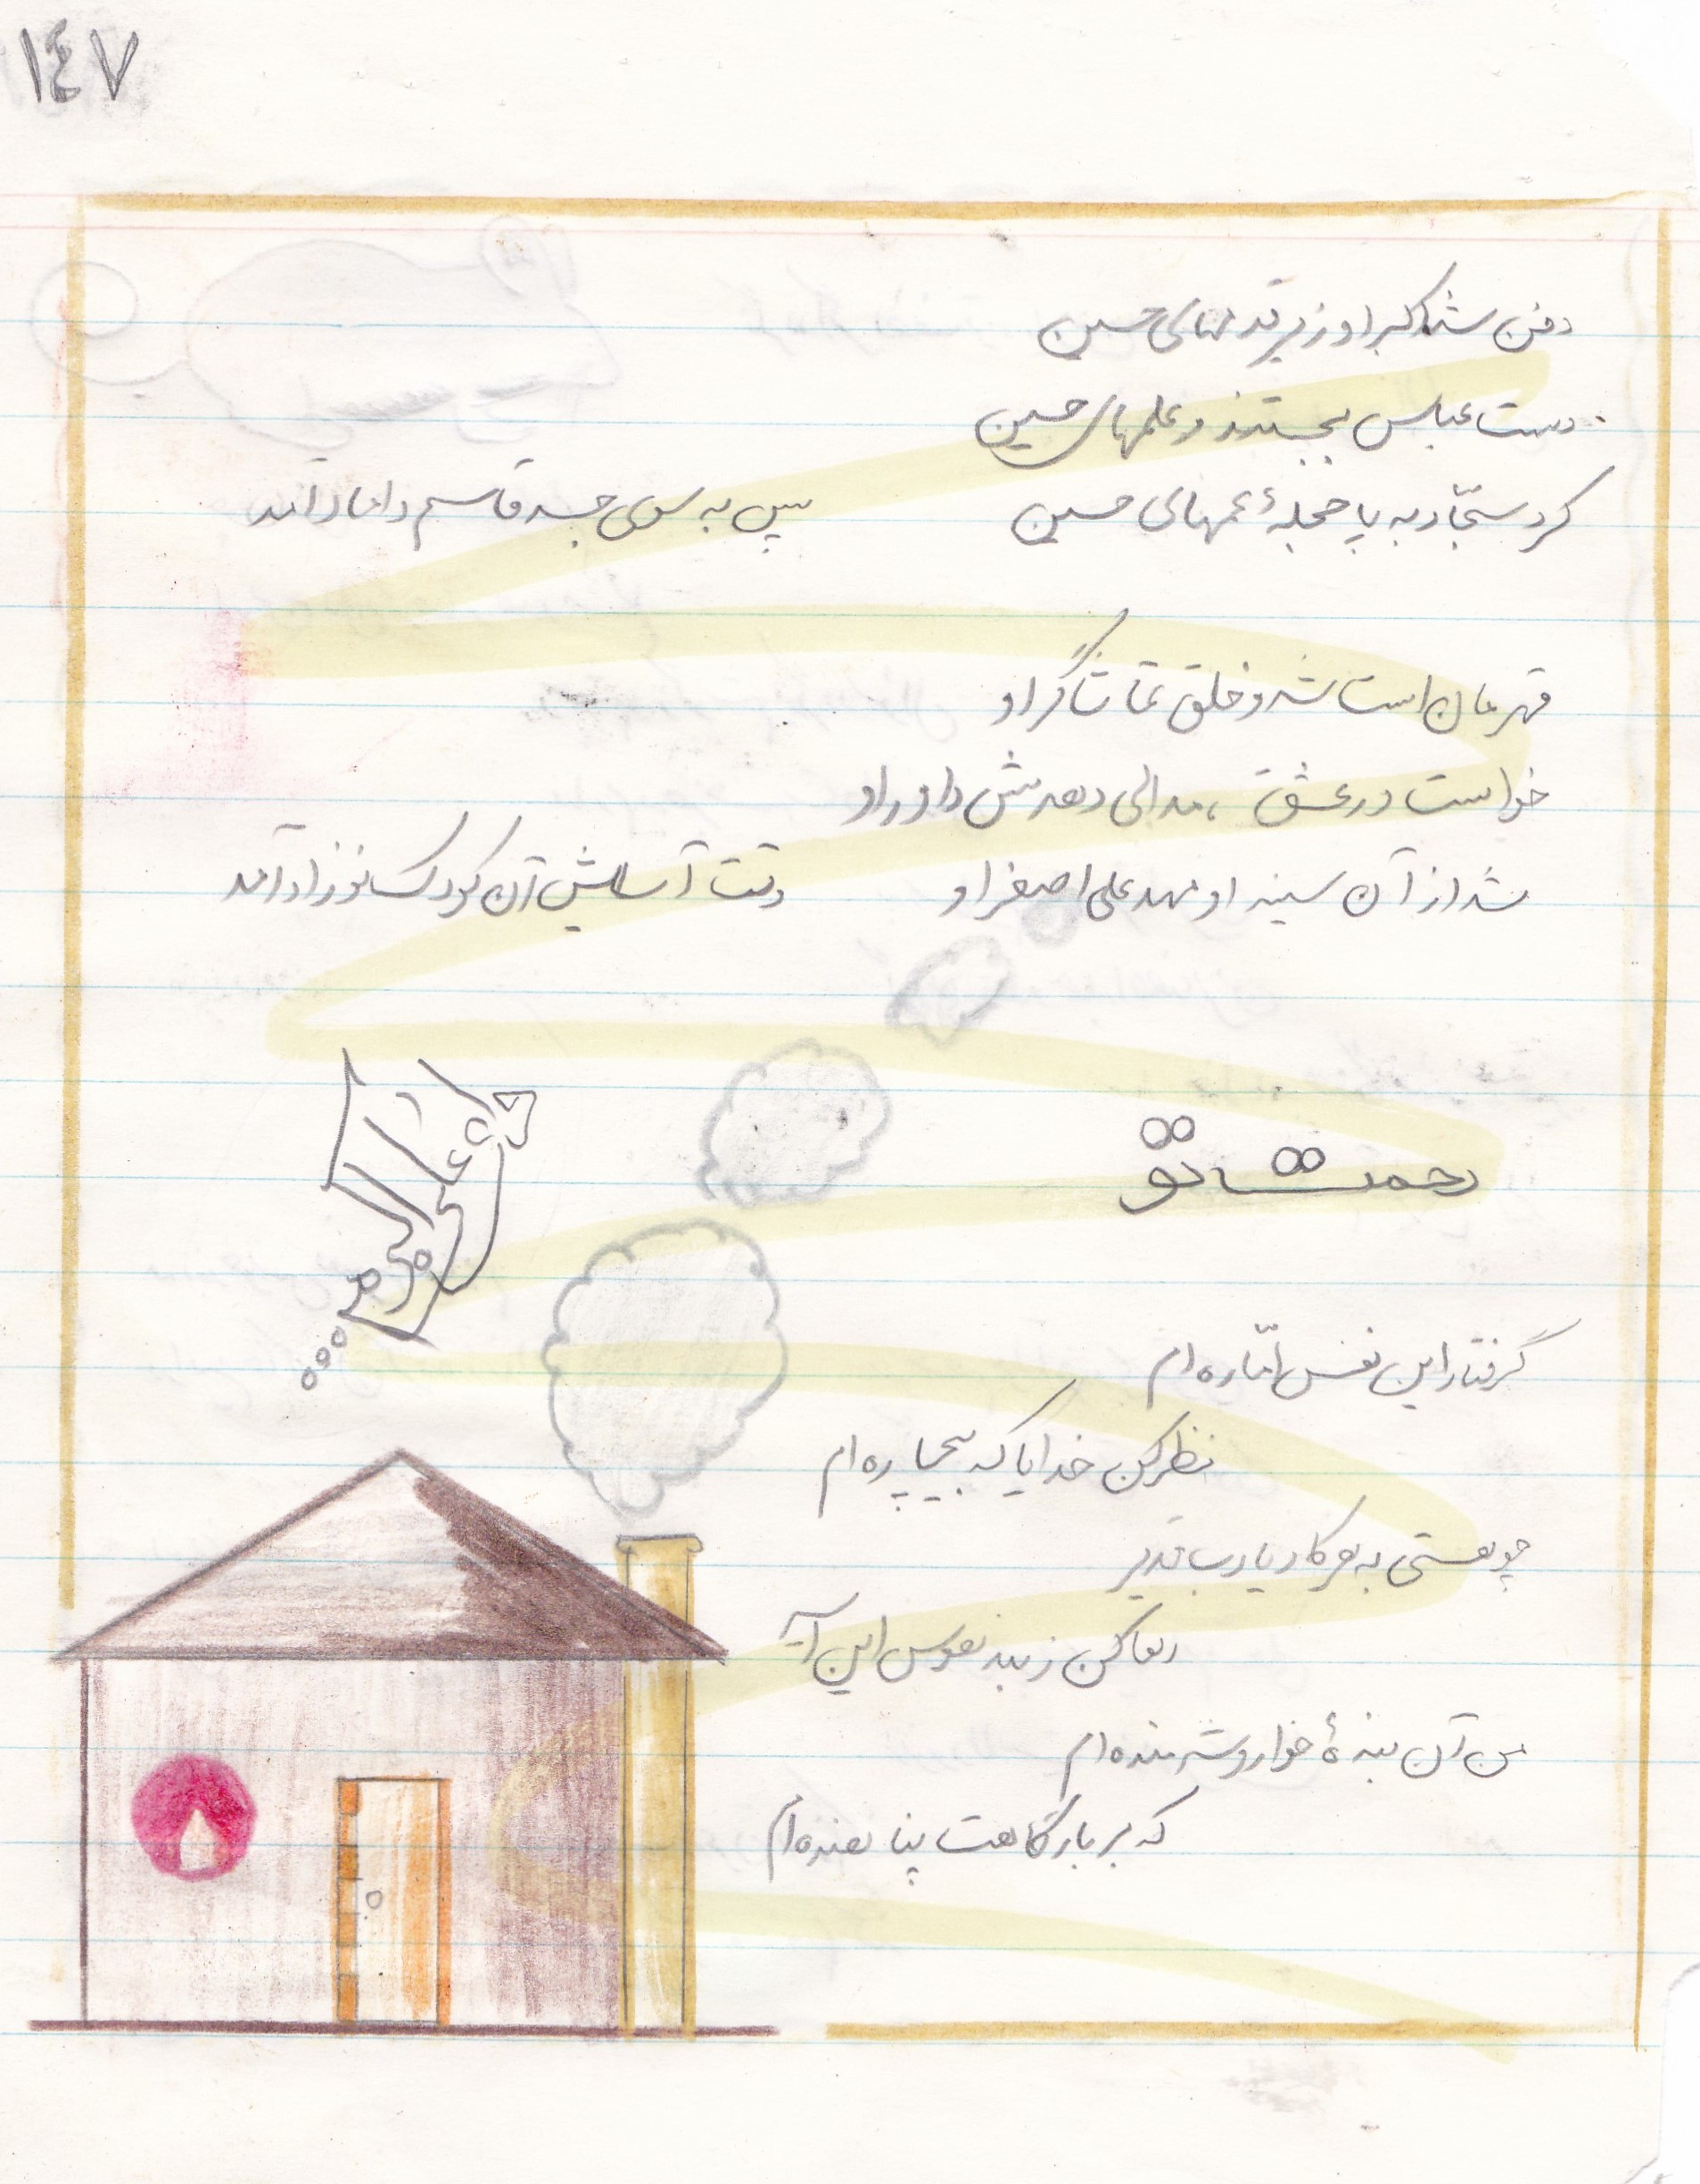 ١٤٧
دفن شد اکبر او زیر قدمهای حسین
دست عباس بجستند و علمهای حسین
کرد سجّاد به پا حجلهٔ غمهای حسین سپس به سوی جسد قاسم داماد آمد
قهرمان است شه و خلق تماشاگر او
خواست در عشق ، مدالی دهدش داور او
شد از آن سینه او مهد علی اصغر او وقت آسایش آن کودک نوزاد آمد
علی اکبر
گرفتار این نفس امّاره ام
نظر کن خدایا که بیچاره ام
چو هستی به هر کار یا رب قدیر
رها کن ز بند هوس این
من آن بندهٔ خوار و شرمنده ام
که بر بارگاهت پناهنده ام